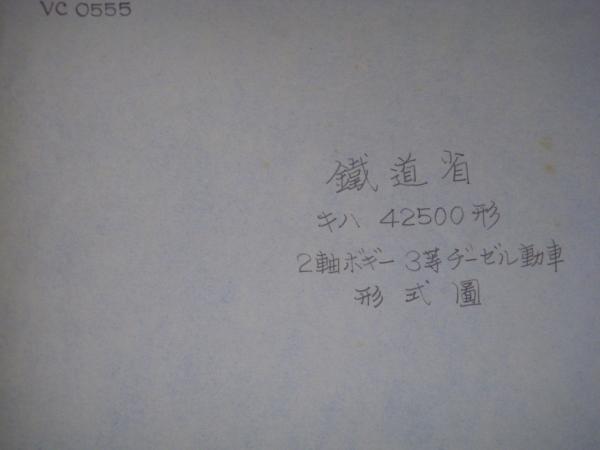 VC 0555
鐵道省
キハ 42500形
2軸ボギー 3等ヂーゼル動車
形式圖